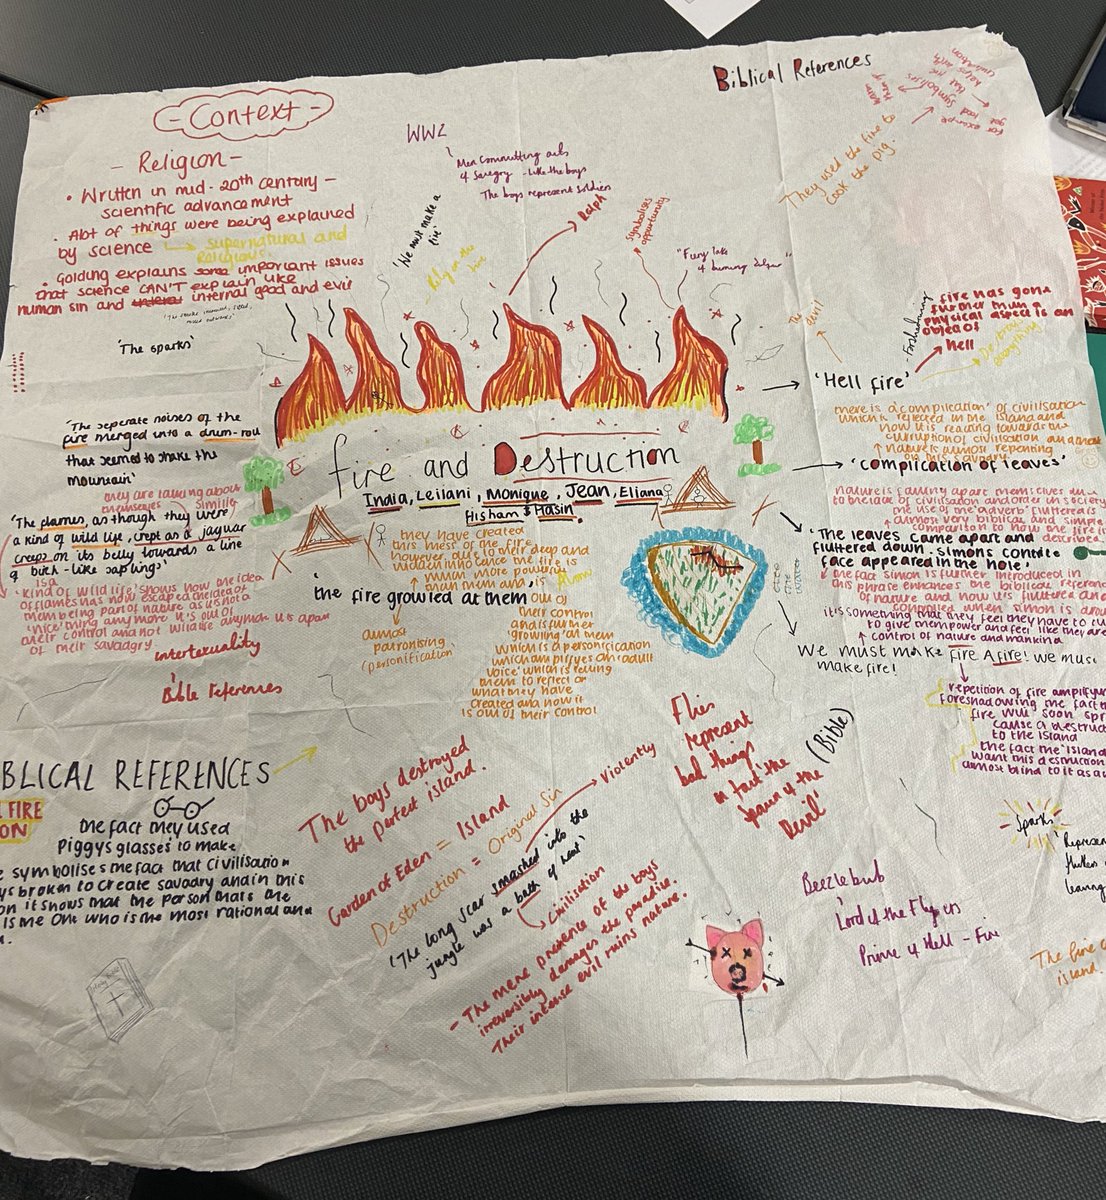 Context
- Religion -
• Written in mid-20th century -
scientific advancement
• Alot of things were being explained
by science → supernatural and
Religious
• Golding explains some important issues
that science CAN'T explain like
human sin and internal good and evil
'The sparks'
'The seperate noises of the
fire merged into a drum-roll
that seemed to shake the
mountain'
they are talking about
themselves
simile
'The flames, as though they were
a kind of wild life, crept as a jaguar
creeps on its belly towards a line
of birch-like saplings'
'Kind of wildlife' shows how the idea
of flames has now escaped the idea of
them being part of nature as its not a
'nice' thing anymore it's out of
their control and not wildlife anymore it is apart
of their savadry
intertexuality
Bible references
WW2
Men committing acts
of savegry - like the boys
The boys represent soldiers
'We must make a
fire'
- Rely on the
fire
Ralph
symbolises
opportunity
"Fiery lake
of burning
Biblical References
They used the fire to
cook the pig.
For example
got food
symbolises
fire and Destruction
India, Leilani, Monique, Jean, Eliana
Hisham & Hasin
they have created
this mess of the fire
however, due to their deep and
hidden innocence the fire is
much more powerful
than them and, is
out of
their control
and is further
'growling' at them
which is a personification
which amplifyes an 'adult
voice' which is telling
them to reflect on
what they have
created and how it
is out of their control
'the fire growled at them
almost
patronising
(personification)
The devil
Forshadowing
fire has gone
further than a
physical aspect is an
object of
hell
Destroy
everything
'Hell fire'
there is a 'complication' of civilisation
which is reflected in the island and
how it is reading towards the
curruption of civilisation and that
nature is almost repenting
on this savadry
'complication of leaves'
'The leaves came apart and
fluttered down. simons concrete
face appeared in the hole'.
the fact Simon is further introduced in
this phrase enhances the biblical reference
of nature and how its fluttered and
it's something that they feel they have to
to give them power and feel like they are
control of nature and mankind
We must make fire A fire! we must
make fire!
repetition of fire amplify
foreshadowing the fact
fire will soon
cause a
to the island
the fact the 'island
want this destruction
almost blind to it as a
BLICAL REFERENCES
FIRE
ON
the fact they used
Piggys glasses to make
symbolises the fact that civilisation
broken to create savadry and in this
on it shows that the person thats the
is the one who is the most rational and
Holy Bible
The boys destroyed
the perfect island.
Garden of Eden = Island
Destruction = Original Sin
Violently
'The long scar smashed into the
jungle was a bath of heat'
Civilisation
- The mere presence of the boys
irreversibly damages the paradise.
Their intense evil ruins nature.
Flies
represent
bad things
in fact 'the
spawn of the
Devil'
(Bible)
Beezlebub
Lord of the Flyers
Prince of Hell - Fire
Sparks
Represen
leaving
The fire
island.